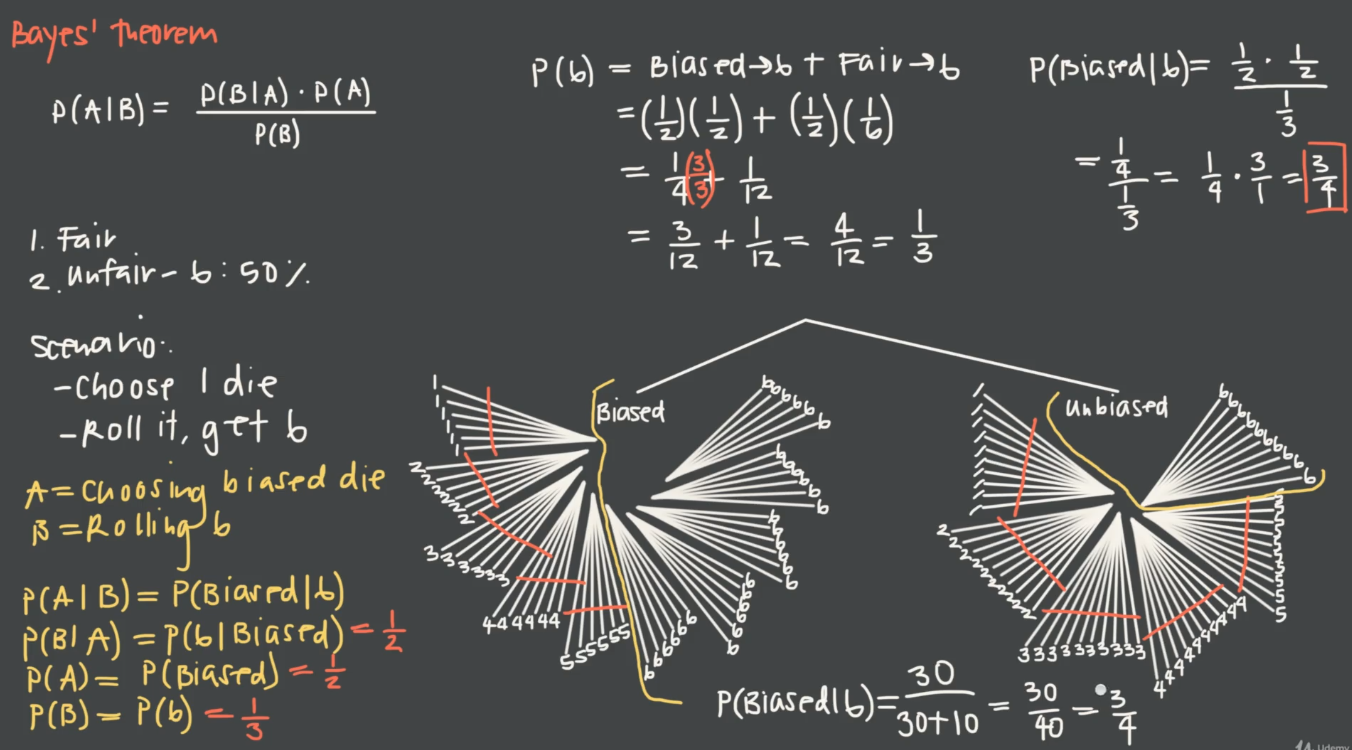 Bayes' Theorem
P(A|B) = P(B|A) · P(A) / P(B)
1. Fair
2. Unfair - 6 : 50%.
Scenario:
- Choose 1 die
- Roll it, get 6
A = Choosing biased die
B = Rolling 6
P(A|B) = P(Biased|6)
P(B|A) = P(6|Biased) = 1/2
P(A) = P(Biased) = 1/2
P(B) = P(6) = 1/3
P(6) = Biased→6 + Fair→6
= (1/2)(1/2) + (1/2)(1/6)
= 1/4 (3/3) + 1/12
= 3/12 + 1/12 = 4/12 = 1/3
P(Biased|6) = 1/2 · 1/2 / 1/3
= 1/4 / 1/3 = 1/4 · 3/1 = 3/4
Biased
1 1 1 1 1
2 2 2 2 2
3 3 3 3 3 3
4 4 4 4 4 4
5 5 5 5 5 5
6 6 6 6 6
6 6 6 6 6 6
6 6 6 6 6 6
6 6 6 6 6 6
6 6 6 6 6 6
Unbiased
6 6 6 6 6 6 6 6 6
1 1 1 1 1 1 1 1 1
2 2 2 2 2 2 2 2 2
3 3 3 3 3 3 3 3 3
4 4 4 4 4 4 4 4 4 4
5 5 5 5 5 5 5 5 5
P(Biased|6) = 30 / 30+10 = 30/40 = 3/4
Udemy